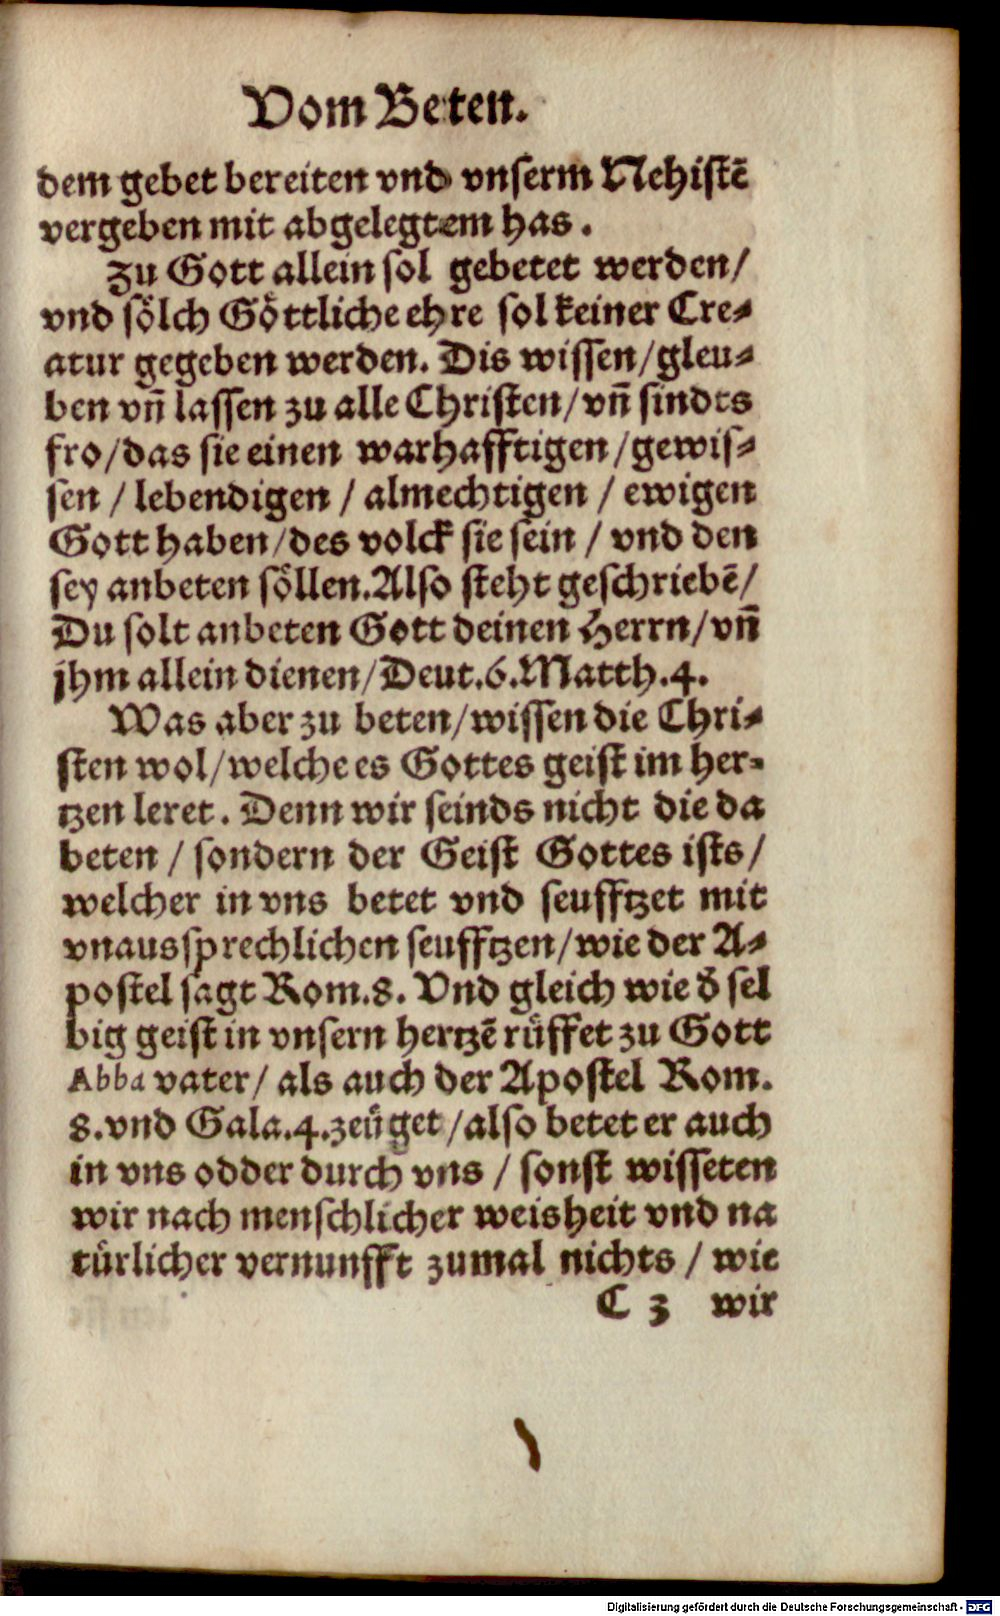 Vom Beten.
dem gebet bereiten vnd vnserm Nehistē
vergeben mit abgelegtem has.
Zu Gott allein sol gebetet werden/
vnd sölch Göttliche ehre sol keiner Cre⸗
atur gegeben werden. Dis wissen/gleu⸗
ben vn̄ lassen zu alle Christen/vn̄ sindts
fro/das sie einen warhafftigen/gewis⸗
sen / lebendigen / almechtigen / ewigen
Gott haben/des volck sie sein / vnd den
sey anbeten söllen.Also steht geschriebē/
Du solt anbeten Gott deinen Herrn/vn̄
jhm allein dienen/Deut.6.Matth.4.
Was aber zu beten/wissen die Chri⸗
sten wol/welche es Gottes geist im her⸗
tzen leret. Denn wir seinds nicht die da
beten / sondern der Geist Gottes ists/
welcher in vns betet vnd seufftzet mit
vnaussprechlichen seufftzen/wie der A⸗
postel sagt Rom.8. Vnd gleich wie d̄ sel
big geist in vnsern hertzē rüffet zu Gott
Abba vater/ als auch der Apostel Rom.
8.vnd Gala.4.zeüget/also betet er auch
in vns odder durch vns / sonst wisseten
wir nach menschlicher weisheit vnd na
türlicher vernunfft zumal nichts / wie
C 3 wir
Digitalisierung gefördert durch die Deutsche Forschungsgemeinschaft - DFG